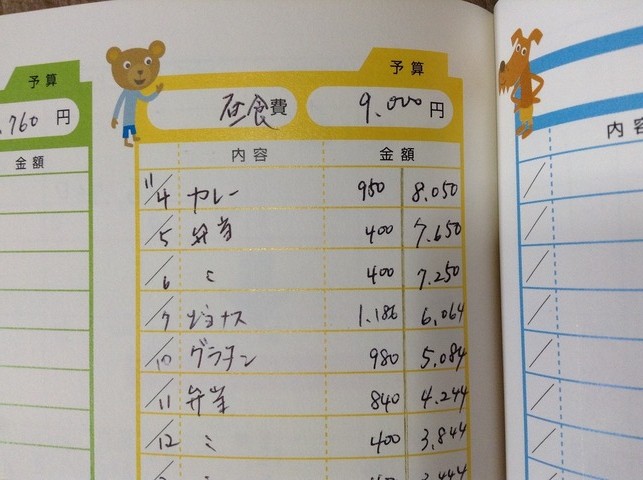 予算
.760 円
金額
予算
昼食費 9.000 円
内容 金額
11/4 カレー 950 8.050
/5 弁当 400 7.650
/6 〃 400 7.250
/7 ジョナス 1.186 6,064
/10 グラタン 980 5.084
/11 弁当 840 4.244
/12 〃 400 3.844
3.444
内容